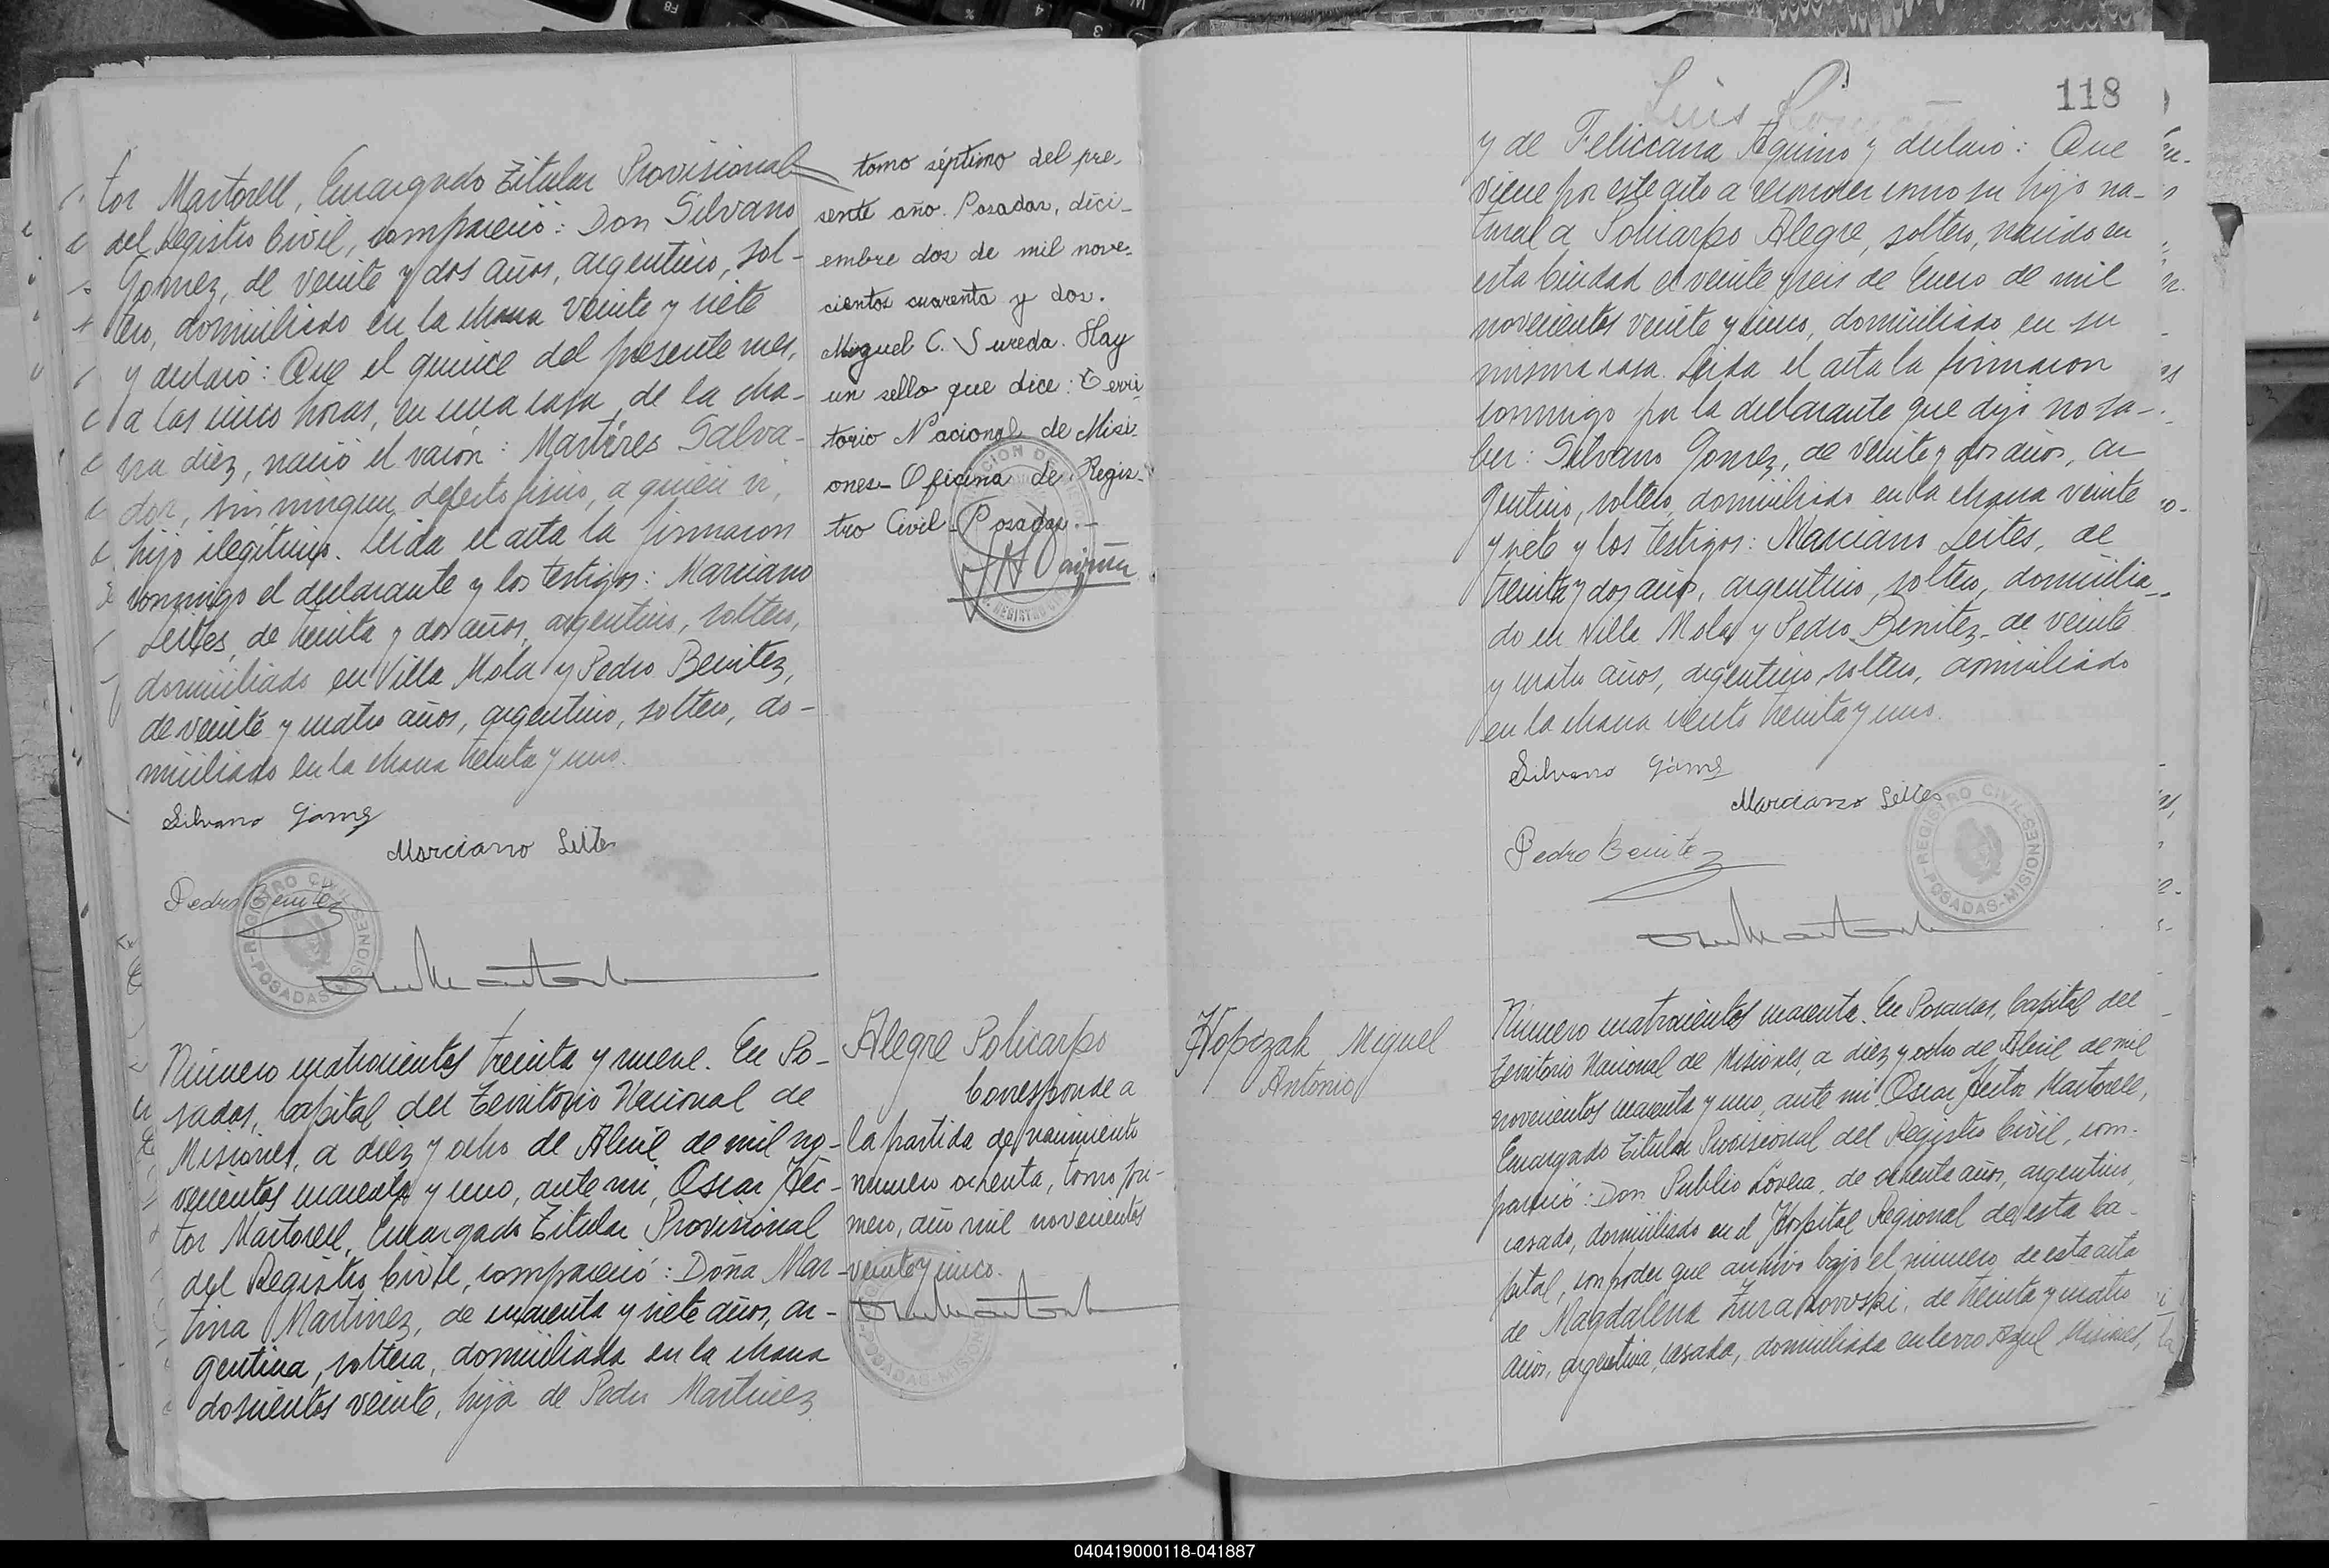 tor Martorell, Encargado Titular Provisional
del Registro Civil, compareció: Don Silvano
Gomez, de veinte y dos años, argentino, sol-
tero, domiciliado en la chacra veinte y siete
y declaró: Que el quince del presente mes,
a las cinco horas, en una casa de la cha-
cra diez, nació el varón: Martires Salva-
dor, sin ningun defecto fisico, a quien vi,
hijo ilegitimo. Leida el acta la firmaron
conmigo el declarante y los testigos: Marciano
Leites, de treinta y dos años, argentino, soltero,
domiciliado en Villa Mola y Pedro Benitez,
de veinte y cuatro años, argentino, soltero, do-
miciliado en la chacra treinta y uno.
Silvano Gomez
Marciano Leites
Pedro Benitez
REGISTRO CIVIL
POSADAS-MISIONES
Número cuatrocientos treinta y nueve. En Po-
sadas, Capital del Territorio Nacional de
Misiones, a diez y ocho de Abril de mil no-
vecientos cuarenta y uno, ante mi, Oscar Héc-
tor Martorell, Encargado Titular Provisional
del Registro Civil, compareció: Doña Mar-
tina Martinez, de cuarenta y siete años, ar-
gentina, soltera, domiciliada en la chacra
doscientos veinte, hija de Pedro Martinez
tomo séptimo del pre-
sente año. Posadas, dici-
embre dos de mil nove-
cientos cuarenta y dos.
Miguel C. Sureda. Hay
un sello que dice: Terri-
torio Nacional de Misi-
ones- Oficina de Regis-
tro Civil- Posadas.-
Alegre Policarpo
Corresponde a
la partida de nacimiento
numero ochenta, tomo pri-
mero, año mil novecientos
veinte y cinco.
118
Luis
y de Feliciana Aquino y declaró: Que
viene por este acto a reconocer como su hijo na-
tural a Policarpo Alegre, soltero, nacido en
esta Ciudad el veinte y seis de Enero de mil
novecientos veinte y cinco, domiciliado en su
misma casa. Leida el acta la firmaron
conmigo por la declarante que dijo no sa-
ber: Silvano Gomez, de veinte y dos años, ar
gentino, soltero, domiciliado en la chacra veinte
y siete y los testigos: Marciano Leites, de
treinta y dos años, argentino, soltero, domicilia-
do en Villa Mola y Pedro Benitez, de veinte
y cuatro años, argentino, soltero, domiciliado
en la chacra ciento treinta y uno.
Silvano Gomez
Marciano Leites
Pedro Benitez
REGISTRO CIVIL
POSADAS-MISIONES
Hopczak Miguel
Antonio
Número cuatrocientos cuarenta. En Posadas, Capital del
Territorio Nacional de Misiones, a diez y ocho de Abril de mil
novecientos cuarenta y uno, ante mi Oscar Hector Martorell,
Encargado Titular Provisional del Registro Civil, com-
pareció: Don Publio Lovera, de ochenta años, argentino,
casado, domiciliado en el Hospital Regional de esta Ca-
pital, con poder que archivo bajo el número de esta acta
de Magdalena Zurakovvski, de treinta y cuatro
años, argentina, casada, domiciliada en Cerro Azul Misiones,
040419000118-041887